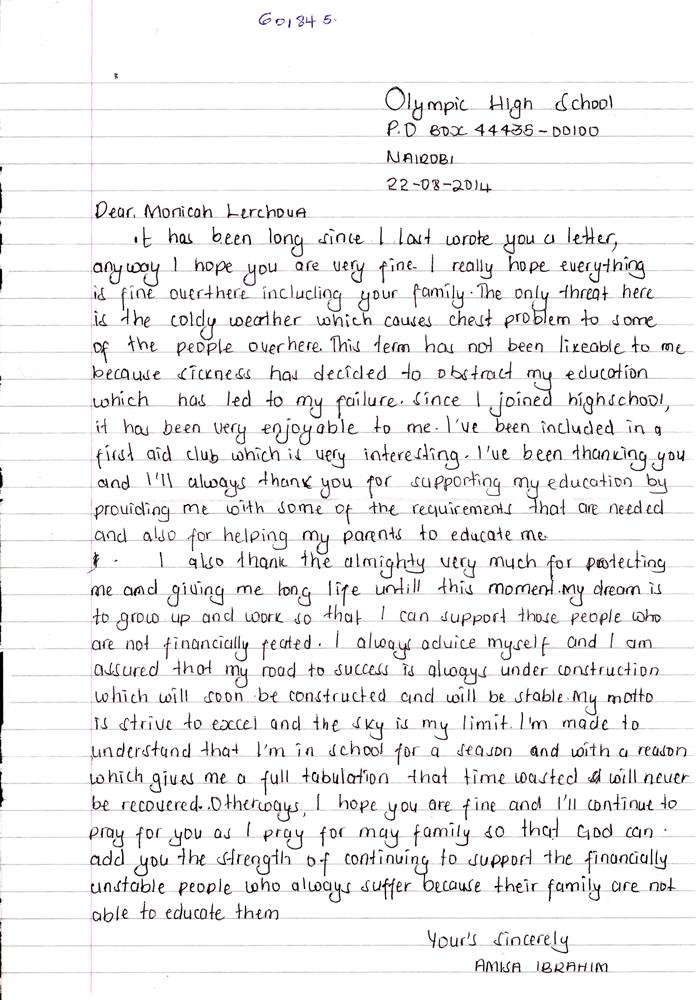 G01845.
Olympic High School
P.O BOX 44435-00100
NAIROBI
22-08-2014
Dear, Monicah Lerchoua
It has been long since I last wrote you a letter,
anyway I hope you are very fine. I really hope everything
is fine overthere including your family. The only threat here
is the coldy weather which causes chest problem to some
of the people overhere. This term has not been likeable to me
because sickness has decided to obstract my education
which has led to my failure. Since I joined highschool,
it has been very enjoyable to me. I've been included in a
first aid club which is very interesting. I've been thanking you
and I'll always thank you for supporting my education by
providing me with some of the requirements that are needed
and also for helping my parents to educate me.
I also thank the almighty very much for protecting
me and giving me long life untill this moment. My dream is
to grow up and work so that I can support those people who
are not financially feated. I always advice myself and I am
assured that my road to success is always under construction
which will soon be constructed and will be stable. My motto
is strive to excel and the sky is my limit. I'm made to
understand that I'm in school for a season and with a reason
which gives me a full tabulation that time wasted will never
be recovered. Otherways, I hope you are fine and I'll continue to
pray for you as I pray for may family so that God can.
add you the strength of continuing to support the financially
unstable people who always suffer because their family are not
able to educate them
Your's sincerely
AMISA IBRAHIM